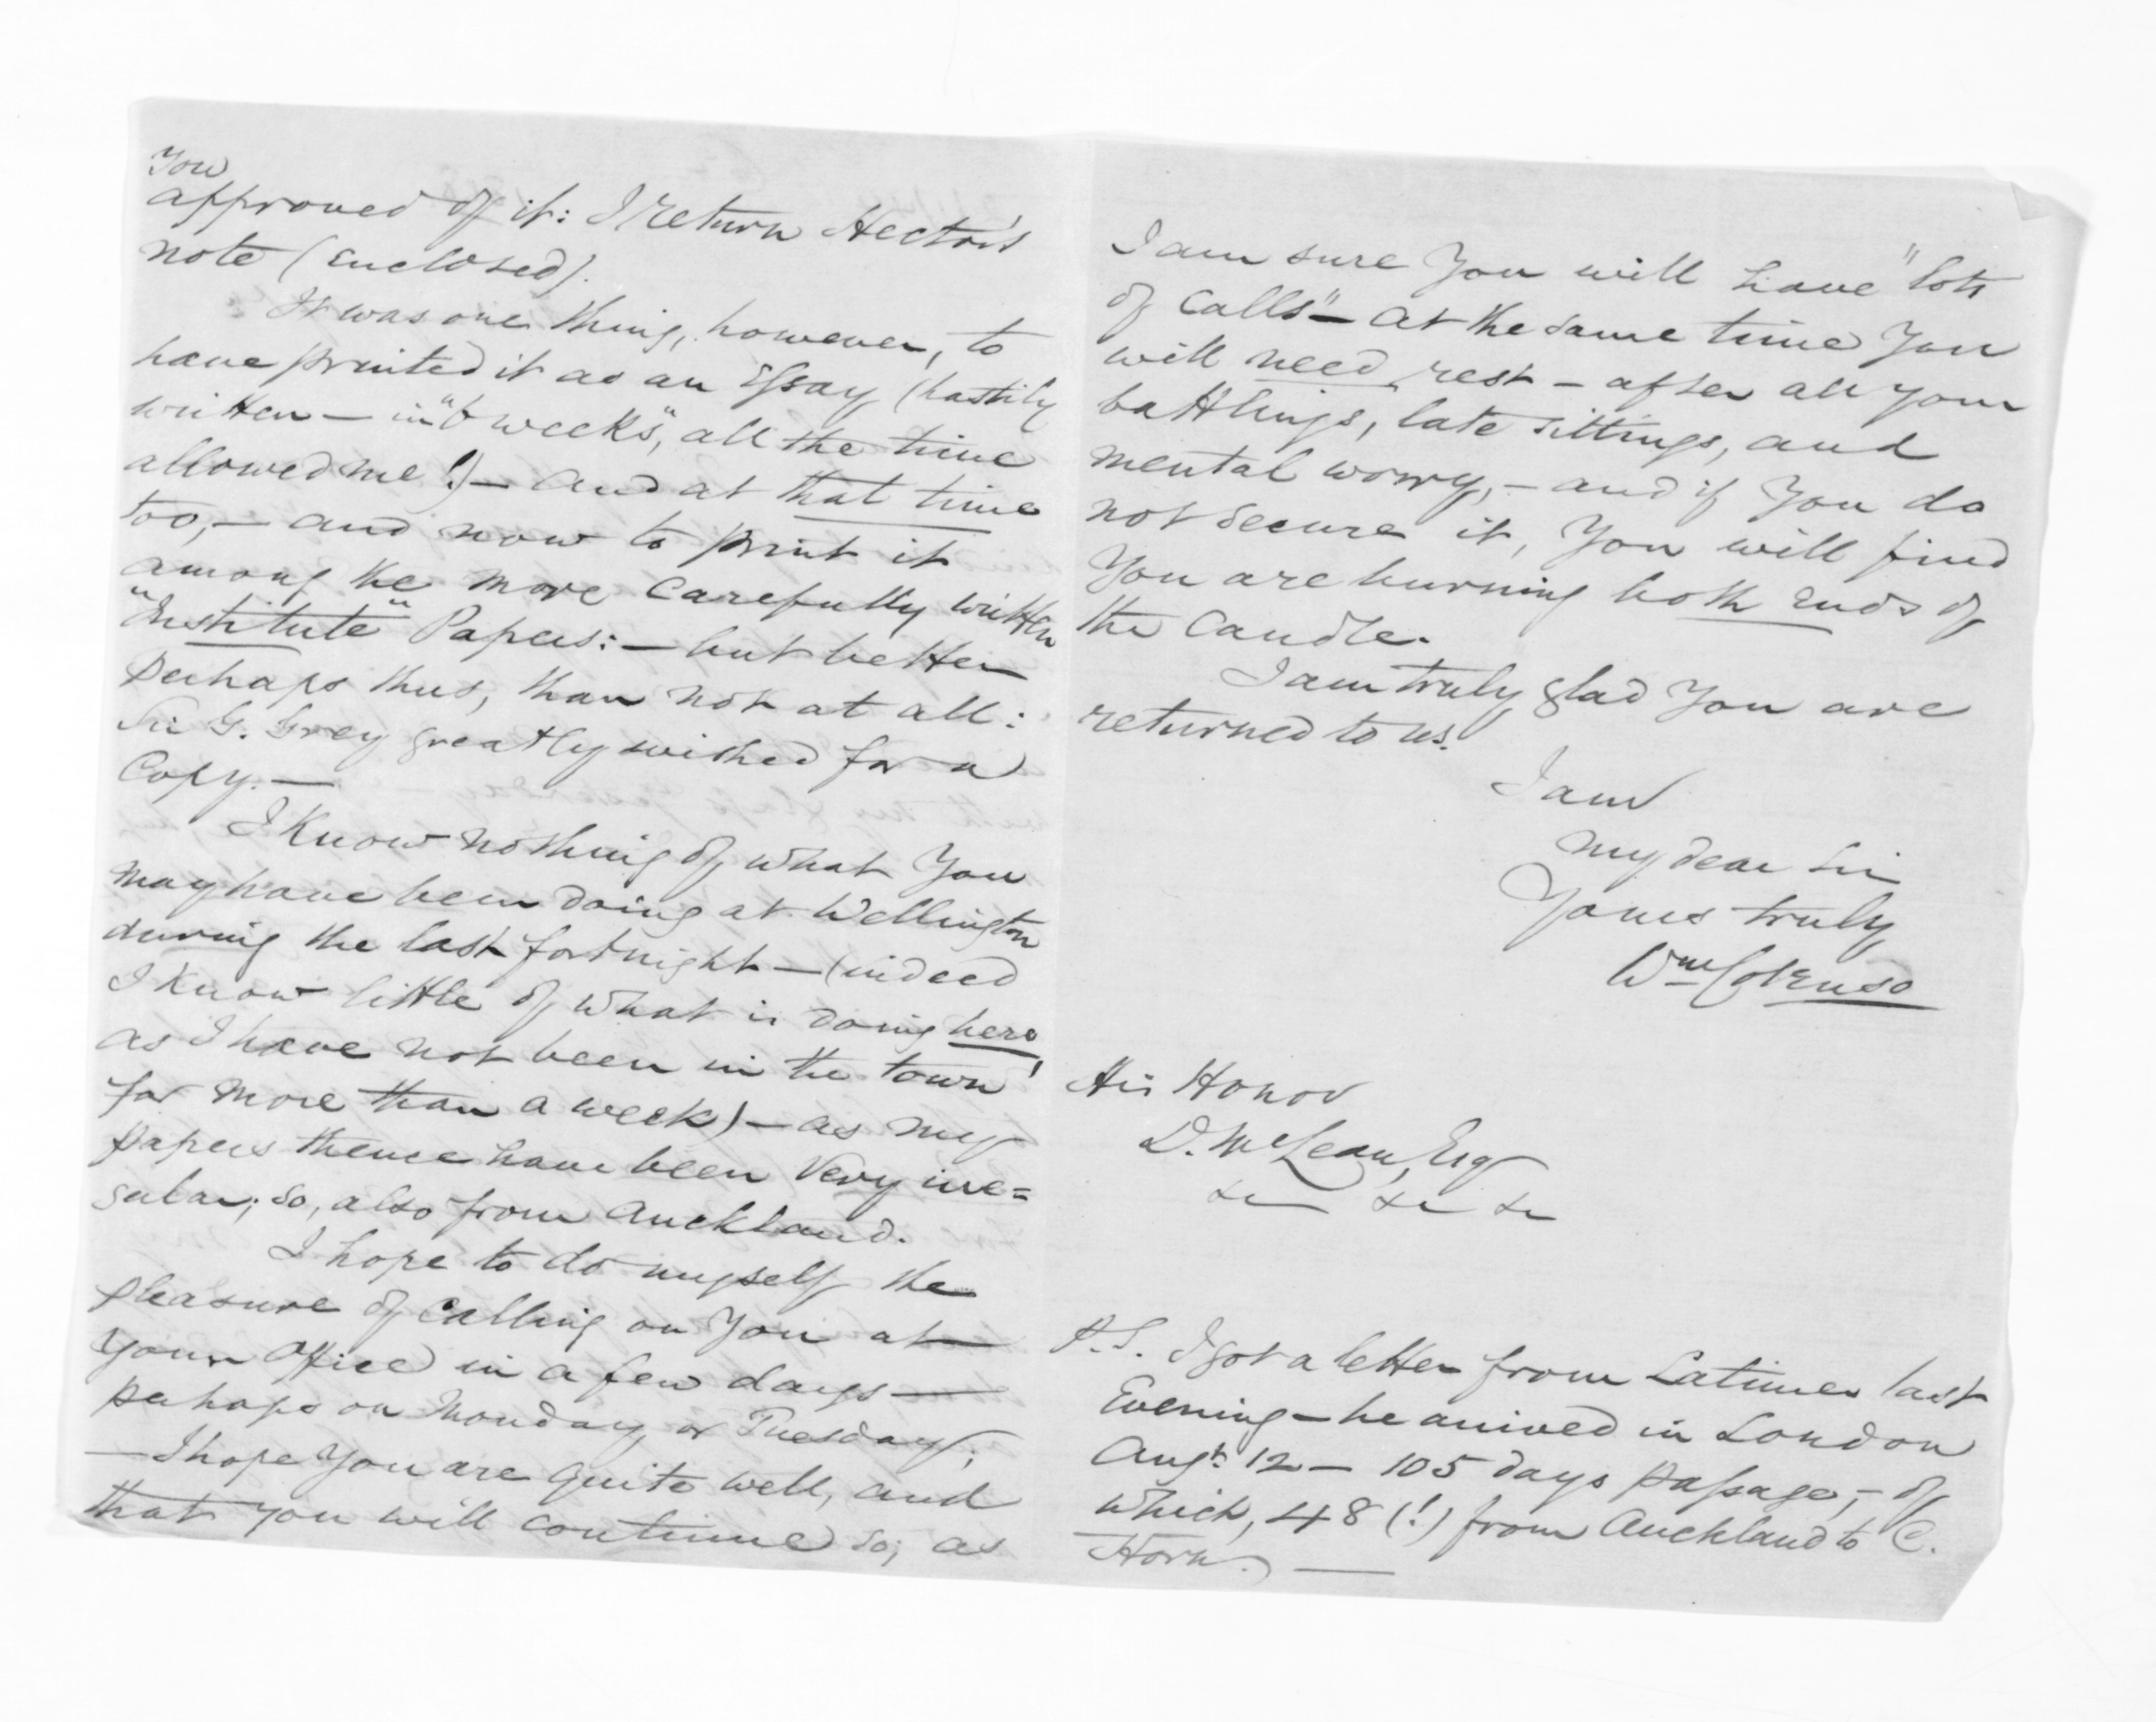 You
approved of it: I return Hector's
note (enclosed).
It was one thing, however, to
have printed it as an Essay (hastily
written — in "6 weeks", all the time
allowed me!) — and at that time
too, — and now to print it
among the more carefully written
"Institute" Papers: — but better
perhaps thus, than not at all:
Sir G. Grey greatly wished for a
Copy. —
I know nothing of what You
may have been doing at Wellington
during the last fortnight — (indeed
I know little of what is doing here,
as I have not been in the town
for more than a week) — as my
papers thence have been very irre=
gular; so, also from Auckland.
I hope to do myself the
pleasure of calling on You at
Your Office in a few days —
perhaps on Monday or Tuesday;
— I hope You are quite well, and
that you will continue so; as
I am sure You will have "lots
of calls" — at the same time You
will need rest — after all your
battlings, late sittings, and
mental worry, — and if You do
not secure it, You will find
You are burning both ends of
the Candle.
I am truly glad You are
returned to us.
I am
my dear Sir
Yours truly
Wm Colenso
His Honor
D. McLean, Esq
&c &c &c
P.S. I got a letter from Latimer last
Evening — he arrived in London
Augt. 12 — 105 days passage, — of
which, 48 (!) from Auckland to C.
Horn. —